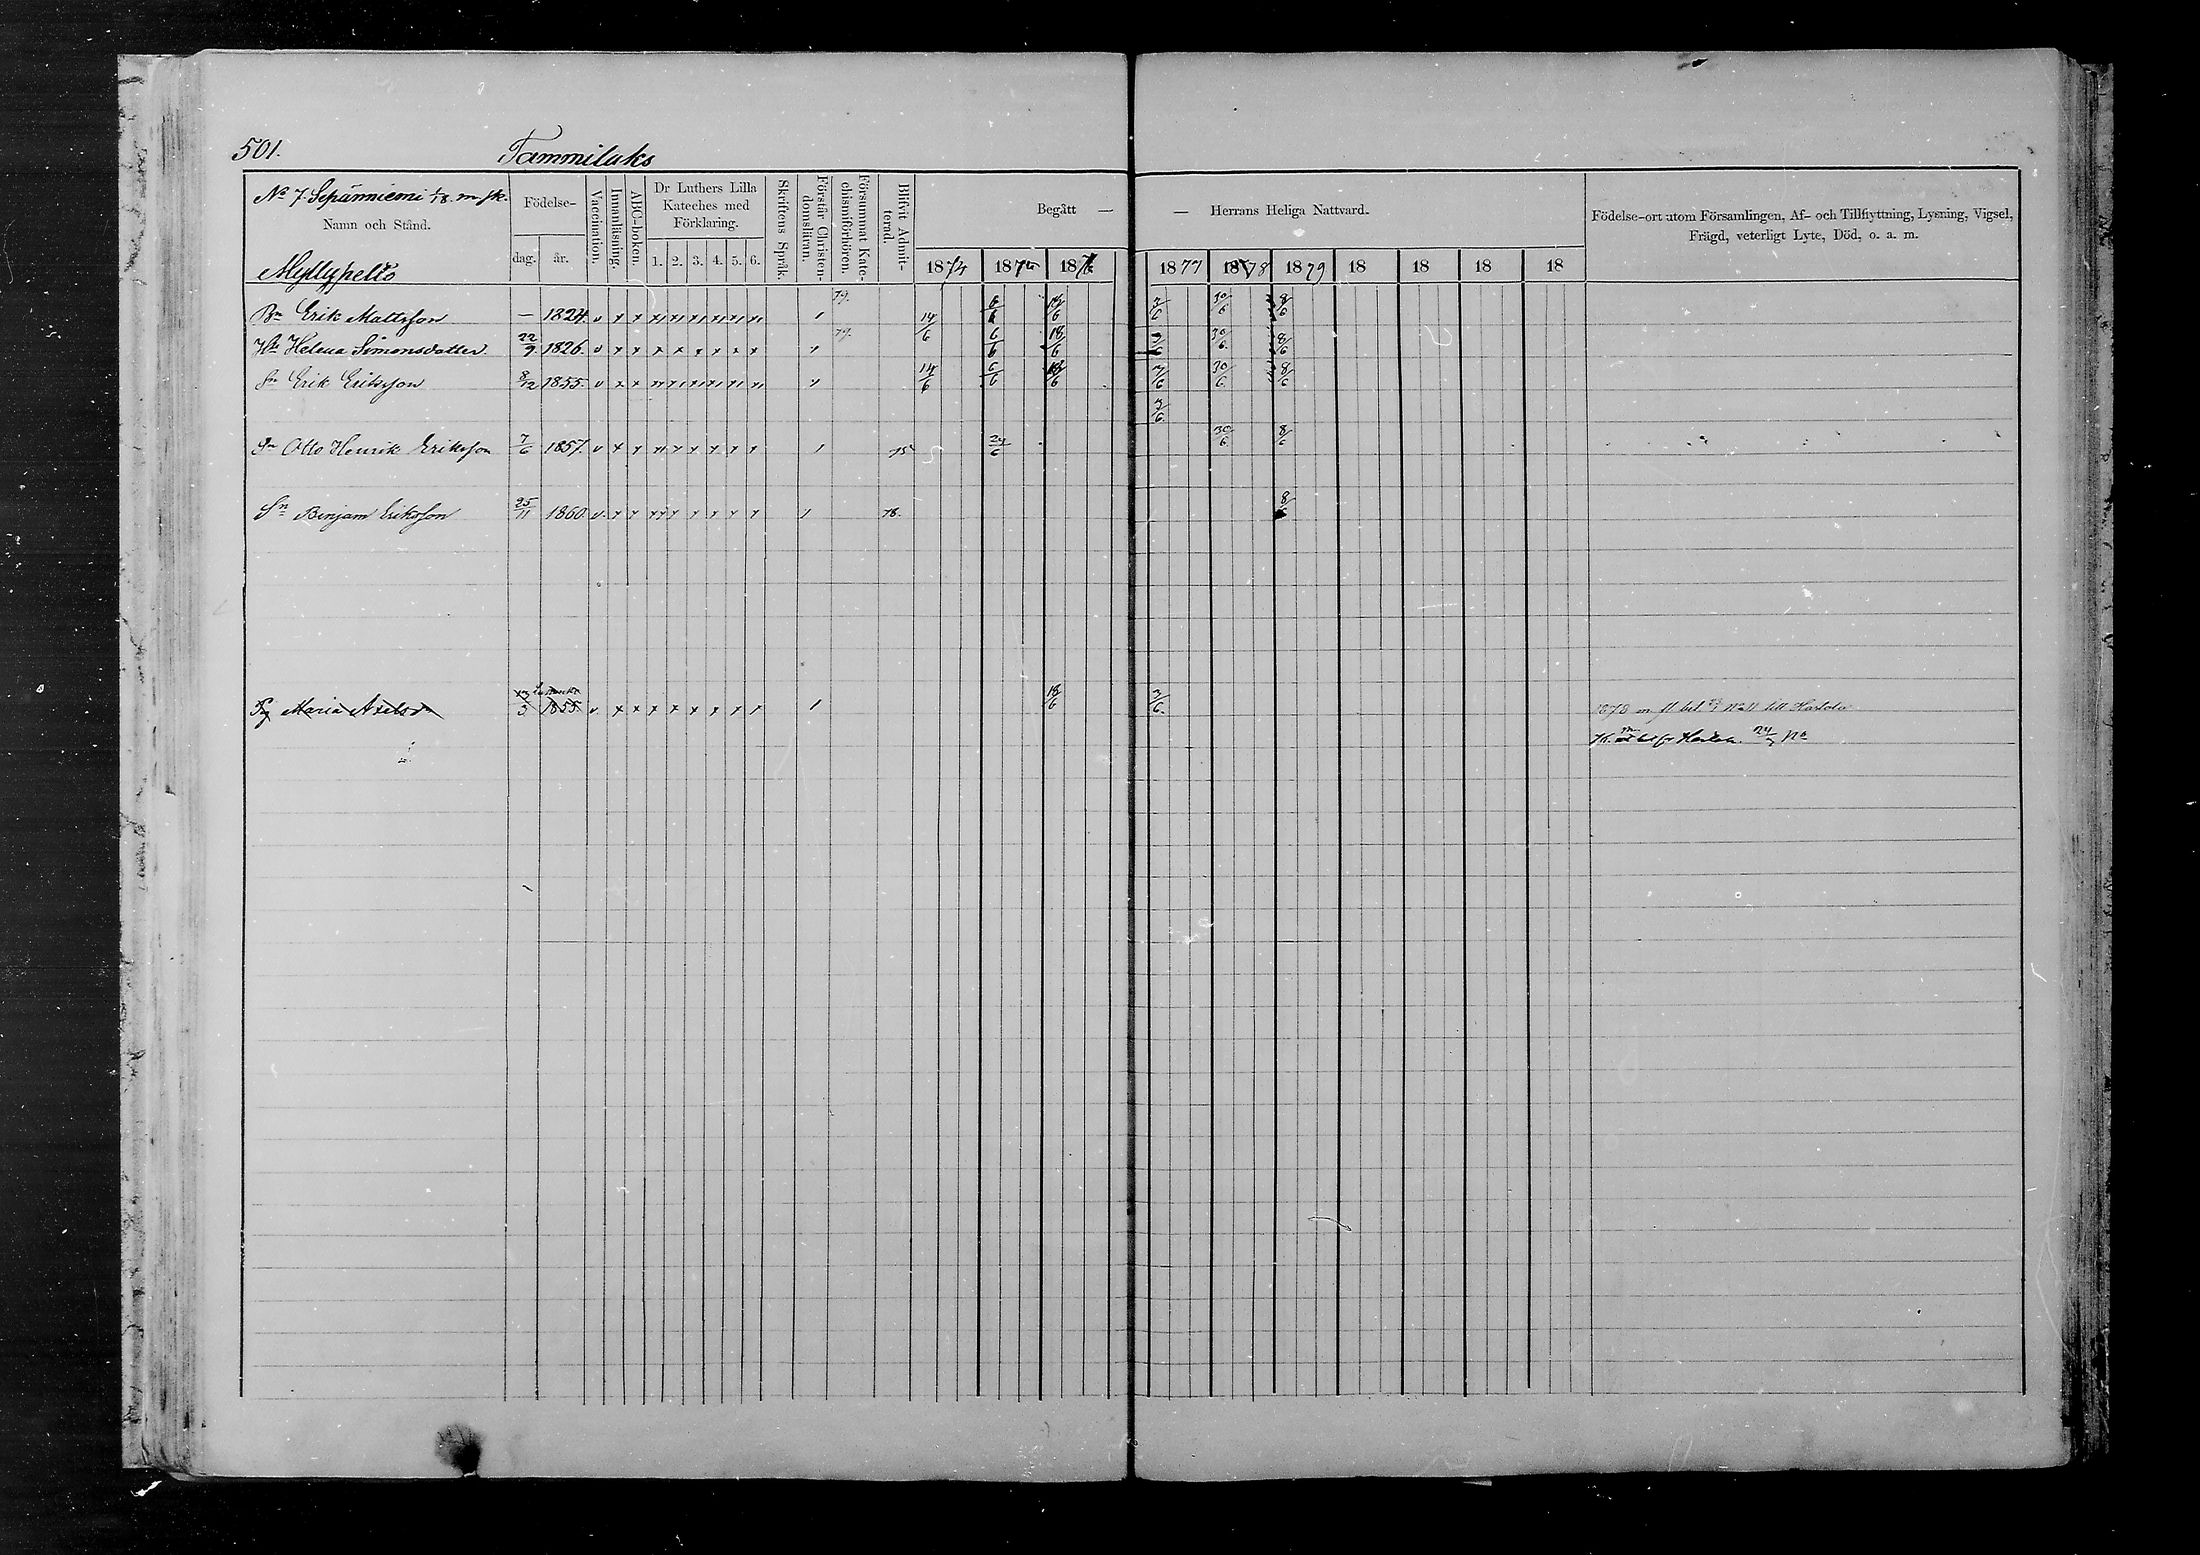 501. Tammiluks
No 7 Sepänniemi 1/8 m sk.
Namn och Stånd.
Födelse-
dag. år.
Vaccination.
Innanläsning.
ABC-boken.
Dr Luthers Lilla Kateches med Förklaring.
1. 2. 3. 4. 5. 6.
Skriftens Språk.
Förstår Christendomsläran.
Försummat Katechismiförhören.
Blifvit Admitterad.
Begått — — Herrans Heliga Nattvard.
1874 187 1876 1877 1878 1879 18 18 18 18
Födelse-ort utom Församlingen, Af- och Tillflyttning, Lysning, Vigsel,
Frägd, veterligt Lyte, Död, o. a. m.
Myllypelto
Bn Erik Mattsson — 1824 v x x 79. 14/6 6/6 18/6 3/6 30/6 8/6
Hu Helena Simonsdotter 22/9 1826 v x x x x x x x x 79. 6/6 18/6 3/6 30/6 8/6
Sn Erik Eriksson 8/12 1855 v x x 14/6 6/6 18/6 3/6 30/6 8/6
3/6
Sn Otto Henrik Eriksson 7/6 1857 v x x 75 24/6 30/6 8/6
Sn Binjam Eriksson 25/11 1860 v x x 78. 8
Maria Axelsdr 13/3 1855 v x x x x x x x x 18/6 3/6 1878 till Hartola
Hartola